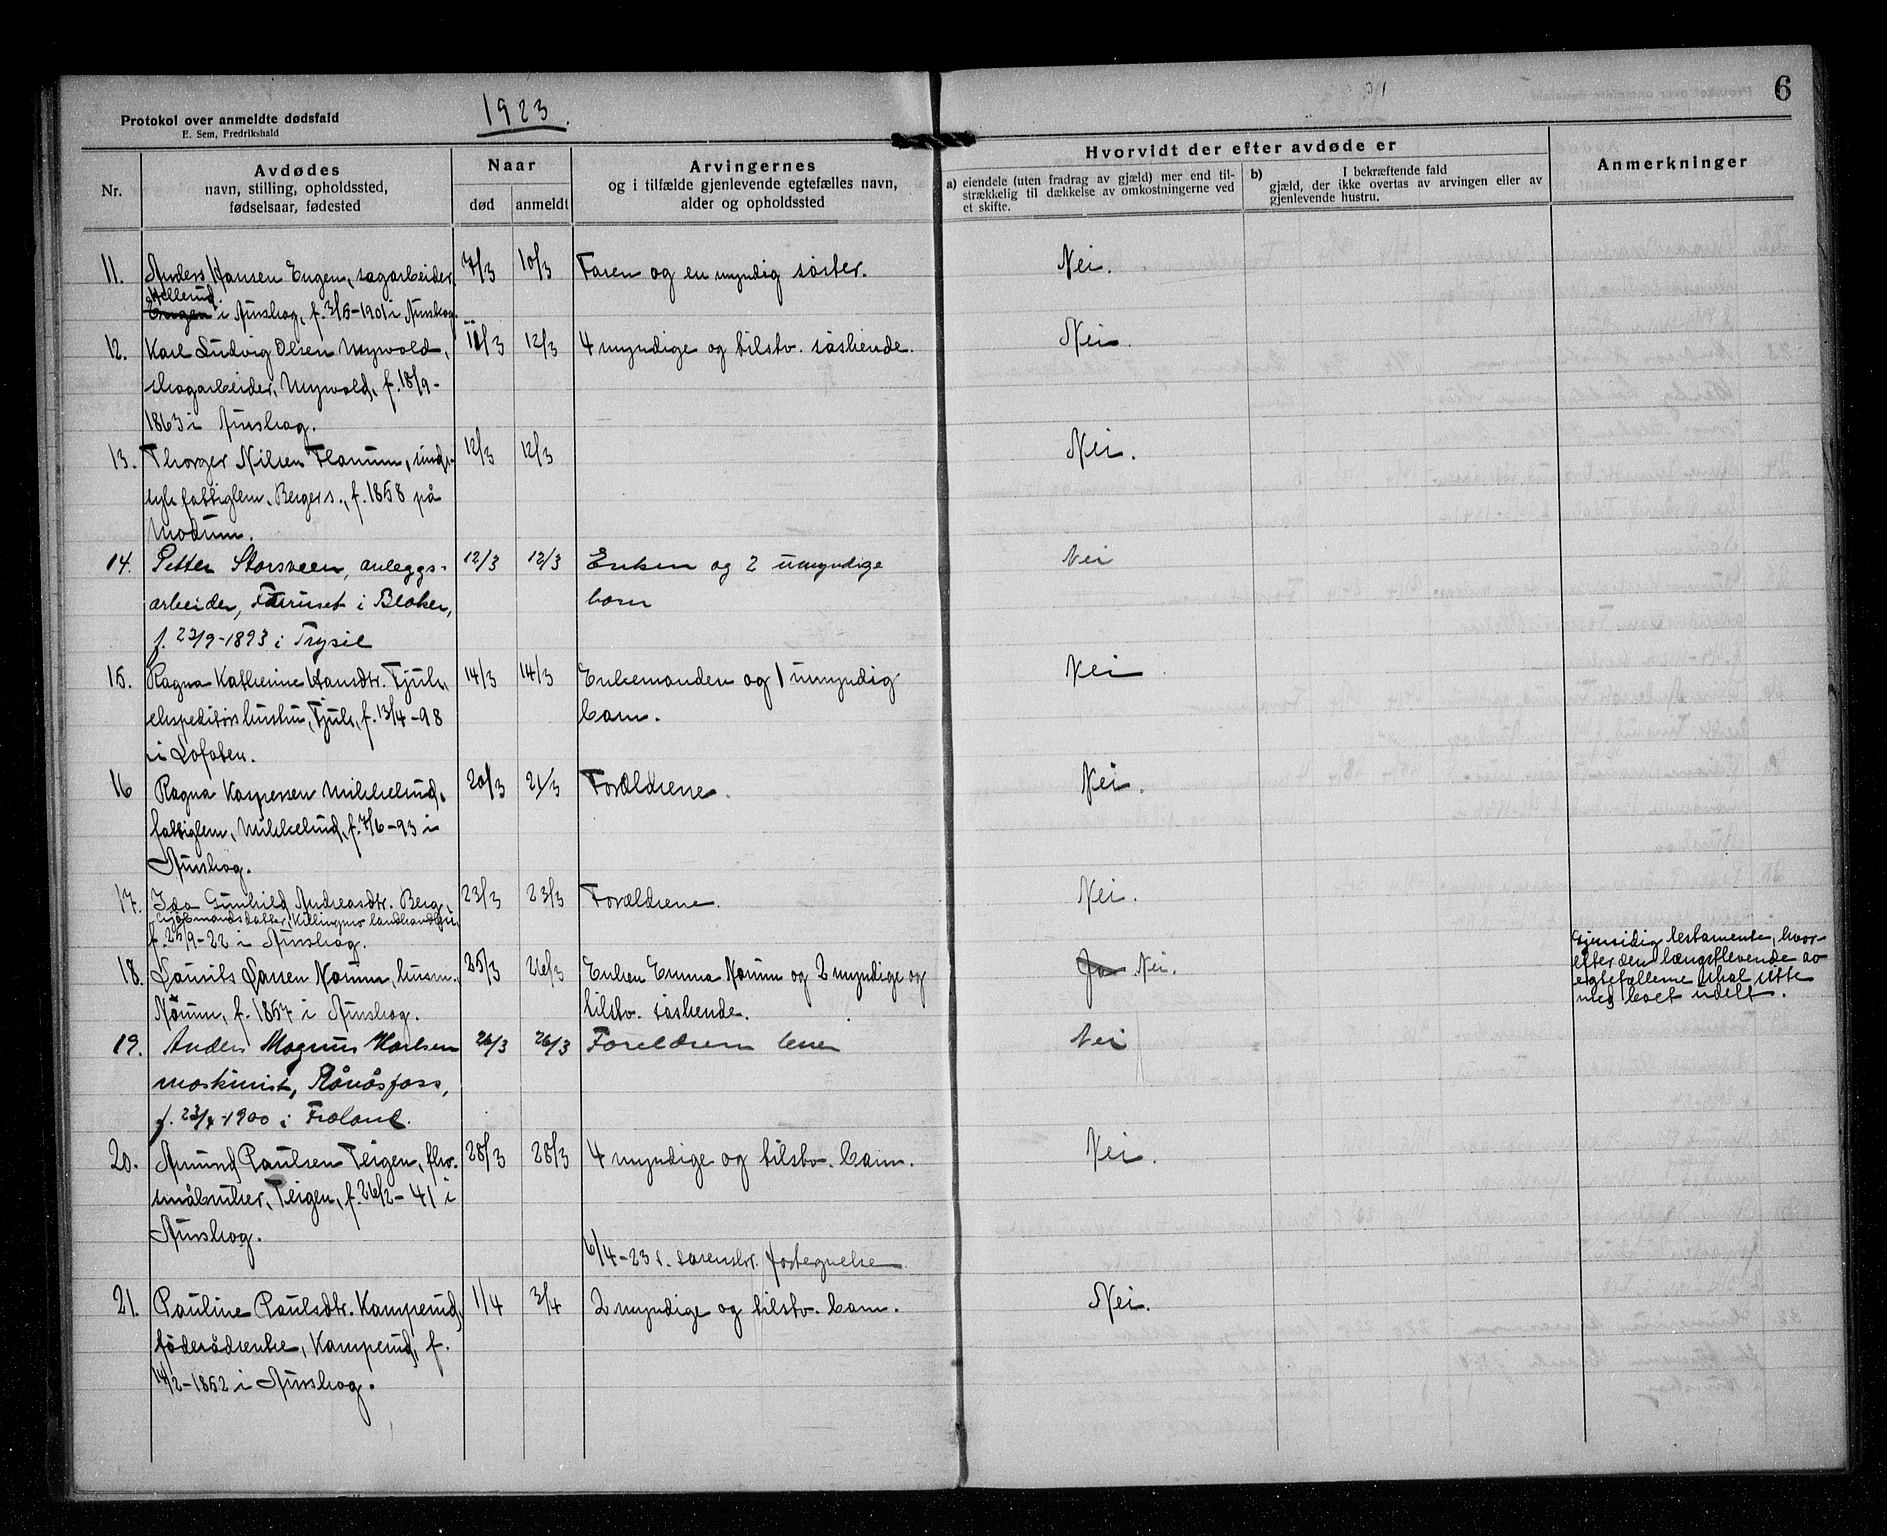 Protokol over anmeldte dødsfald
E. Sem, Fredrikshald
1923.
6
Nr.
Avdødes
navn, stilling, opholdssted,
fødselsaar, fødested
Naar
død
anmeldt
Arvingernes
og i tilfælde gjenlevende egtefælles navn,
alder og opholdssted
Hvorvidt der efter avdøde er
a) eiendele (uten fradrag av gjæld) mer end til-
strækkelig til dækkelse av omkostningerne ved
et skifte.
b) I bekræftende fald
gjæld, der ikke overtas av arvingen eller av
gjenlevende hustru.
Anmerkninger
11. Anders Hansen Engen, sagarbeider 7/3 10/3 Faren og en myndig søster. Nei.
Hellerud
Engen i Aurskog, f. 3/5-1901 i Aurskog.
12. Karl Ludvig Olsen Myrvold, 11/3 12/3 4 myndige og tilstv. søskende. Nei.
skogarbeider, Myrvold, f. 18/9-
1863 i Aurskog.
13. Thorger Nilsen Flanum, sinds- 12/3 12/3 Nei.
syk fattiglem, Bergers., f. 1858 på
Modum.
14. Petter Storsveen, anleggs- 12/3 12/3 Enken og 2 umyndige Nei
arbeider, i Blaker, barn
f. 22/9-1893 i Trysil
15. Ragna Katherine Hansdtr. Fjuk, 14/3 14/3 Enkemanden og 1 umyndig Nei
ekspeditørs hustru, Fjuk, f. 13/4-98 barn.
i Lofoten.
16 Ragna Kaspersen Mikkelrud, 20/3 21/3 Forældrene. Nei.
fattiglem, Mikkelrud, f. 7/6-93 i
Aurskog.
17. Ida Gunhild Andreasdtr. Berg, 23/3 23/3 Forældrene. Nei.
kjøbmandsdatter, Killingmo landhandleri,
f. 25/9-22 i Aurskog.
18. Laurits Larsen Norum, husm. 25/3 26/3 Enken Emma Norum og 2 myndige og Ja Nei.
Norum, f. 1857 i Aurskog. tilstv. søskende.
Gjensidig testamente, hvor-
efter den længstlevende av
egtefællerne skal sitte
med boet udelt.
19. Anders Magnus Karlsen 26/3 26/3 Foreldrene lever Nei
maskinist, Rånåsfoss,
f. 23/4-1900 i Froland.
20. Amund Paulsen Teigen, fhv. 28/3 28/3 4 myndige og tilstv. barn. Nei.
småbruker, Teigen, f. 26/2-41 i
Aurskog.
6/4-23 s. sorenskr. fortegnelse
21. Pauline Paulsdtr. Kamperud, 1/4 3/4 2 myndige og tilstv. barn. Nei.
føderådsenke, Kamperud, f.
14/2-1852 i Aurskog.